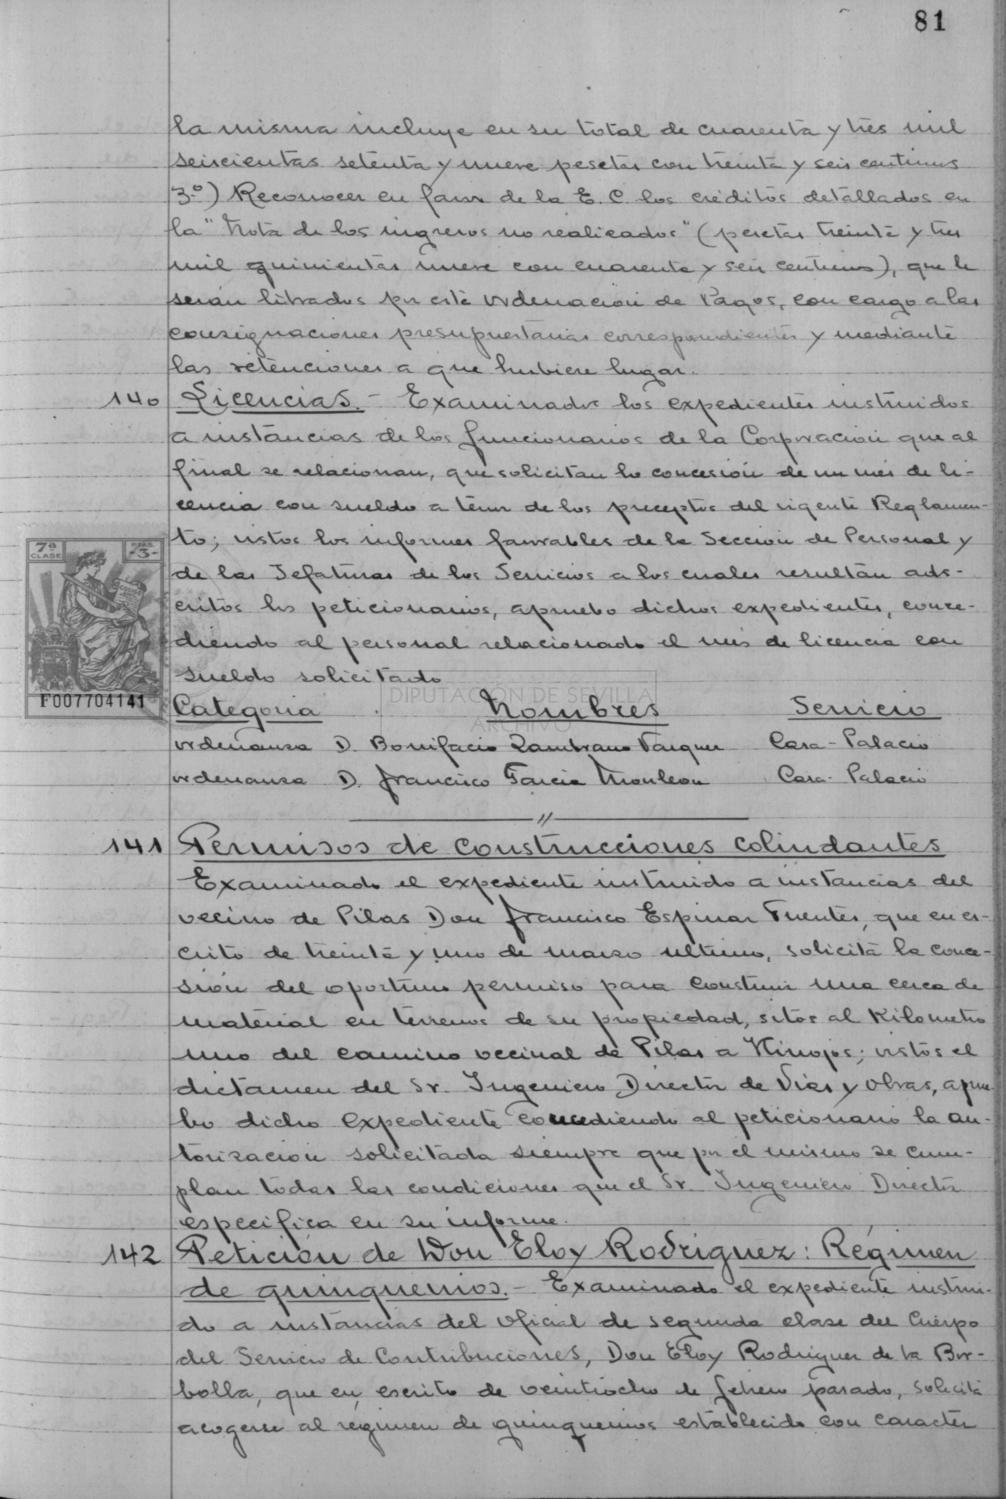 81
la misma incluye en su total de cuarenta y tres mil
seiscientas setenta y nueve pesetas con treinta y seis centimos
3º) Reconocer en favor de la E. C. los créditos detallados en
la "Nota de los ingresos no realizados" (pesetas treinta y tres
mil quinientas nueve con cuarenta y seis centimos), que le
serán librados por esta Ordenación de Pagos, con cargo a las
consignaciones presupuestarias correspondientes y mediante
las retenciones a que hubiere lugar.
140 Licencias.- Examinados los expedientes instruidos
a instancias de los funcionarios de la Corporación que al
final se relacionan, que solicitan la concesión de un mes de li-
cencia con sueldo a tenor de los preceptos del vigente Reglamen-
to; vistos los informes favorables de la Sección de Personal y
de las Jefaturas de los Servicios a los cuales resultan ads-
critos los peticionarios, apruebo dichos expedientes, conce-
diendo al personal relacionado el mes de licencia con
sueldo solicitado
7ª CLASE
-3-
F007704141
DIPUTACIÓN DE SEVILLA
ARCHIVO
Categoria Nombres Servicio
Ordenanza D. Bonifacio Zambrano Vazquez Casa-Palacio
Ordenanza D. Francisco Garcia Monleon Casa-Palacio
141 Permisos de construcciones colindantes
Examinado el expediente instruido a instancias del
vecino de Pilas Don Francisco Espinar Fuentes, que en es-
crito de treinta y uno de marzo ultimo, solicita la conce-
sión del oportuno permiso para construir una cerca de
material en terrenos de su propiedad, sitos al Kilometro
uno del camino vecinal de Pilas a Hinojos; vistos el
dictamen del Sr. Ingeniero Director de Vias y Obras, aprue
bo dicho expediente concediendo al peticionario la au-
torización solicitada siempre que por el mismo se cum-
plan todas las condiciones que el Sr. Ingeniero Director
especifica en su informe.
142 Petición de Don Eloy Rodriguez: Régimen
de quinquenios.- Examinado el expediente instrui-
do a instancias del Oficial de segunda clase del Cuerpo
del Servicio de Contribuciones, Don Eloy Rodriguez de la Bor-
bolla, que en escrito de veintiocho de febrero pasado, solicita
acogerse al régimen de quinquenios establecido con caracter